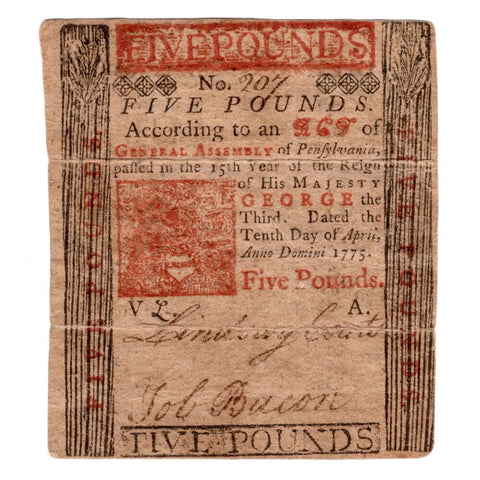 FIVE POUNDS
No. 207
FIVE POUNDS.
According to an ACT of
GENERAL ASSEMBLY of Penſylvania,
paſſed in the 15th Year of the Reign
of His MAJESTY
GEORGE the
Third. Dated the
Tenth Day of April,
Anno Domini 1775.
Five Pounds.
V L. A.
Lindsay Coats
Job Bacon
FIVE POUNDS
FIVE POUNDS
FIVE POUNDS